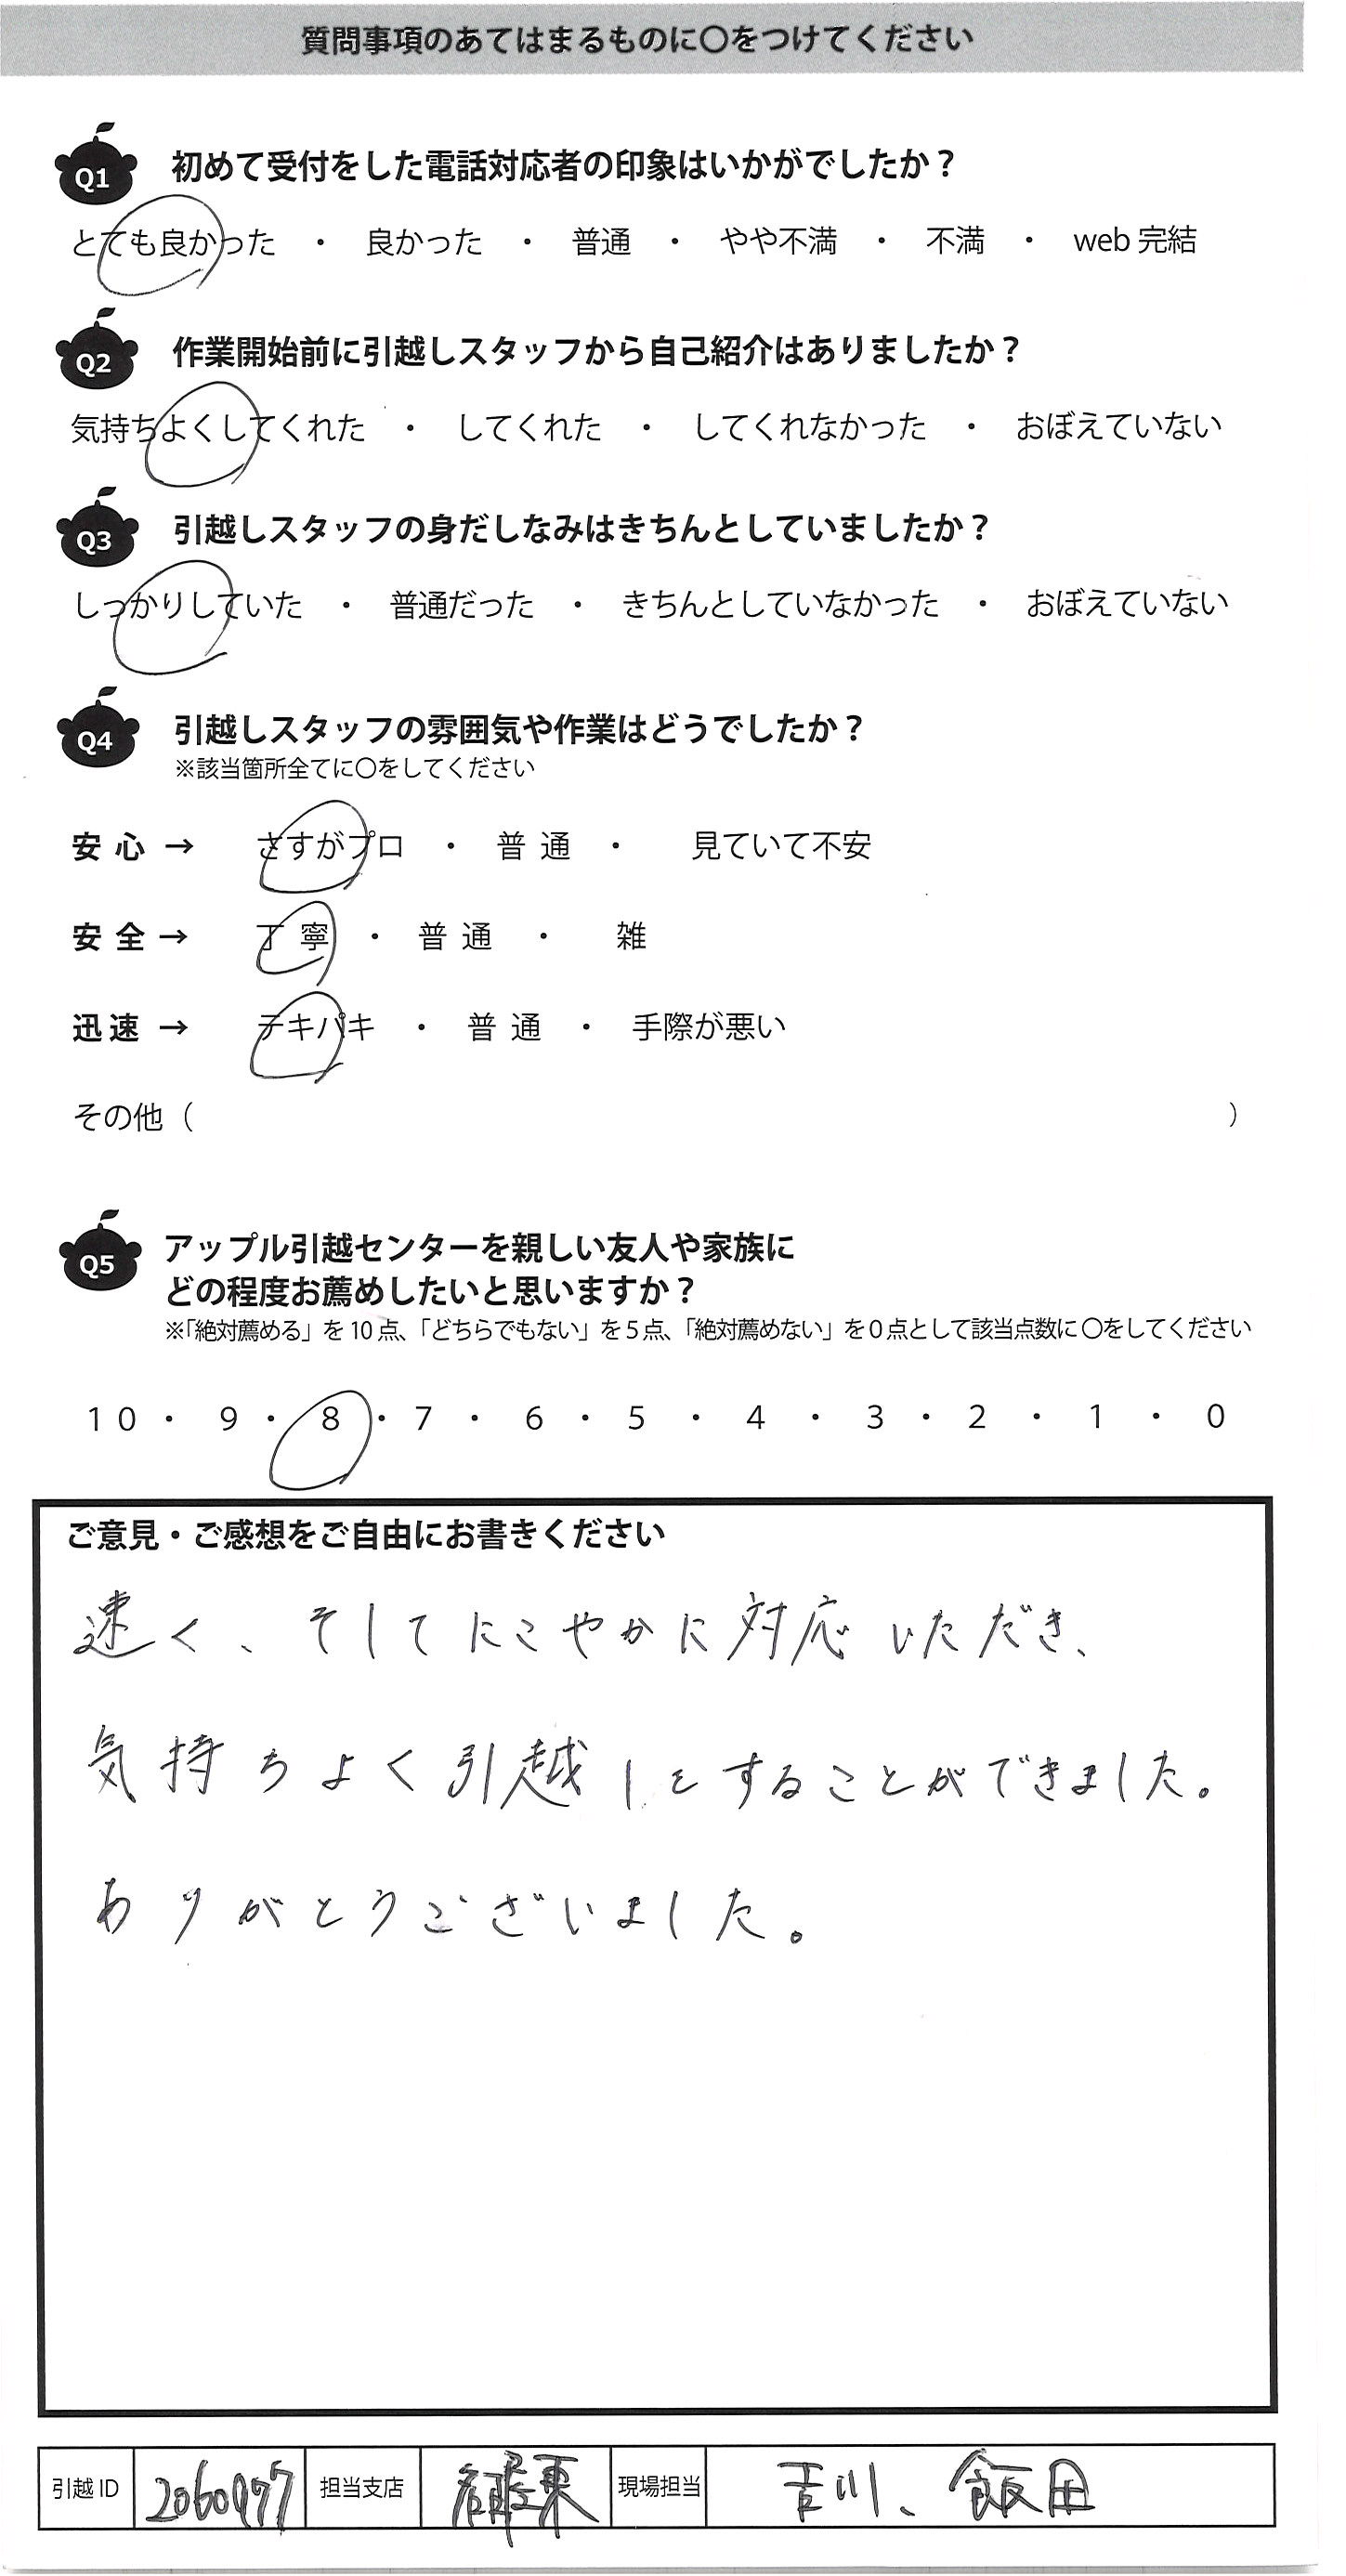 質問事項のあてはまるものに〇をつけてください
Q1 初めて受付をした電話対応者の印象はいかがでしたか？
とても良かった ・ 良かった ・ 普通 ・ やや不満 ・ 不満 ・ web 完結
Q2 作業開始前に引越しスタッフから自己紹介はありましたか？
気持ちよくしてくれた ・ してくれた ・ してくれなかった ・ おぼえていない
Q3 引越しスタッフの身だしなみはきちんとしていましたか？
しっかりしていた ・ 普通だった ・ きちんとしていなかった ・ おぼえていない
Q4 引越しスタッフの雰囲気や作業はどうでしたか？
※該当箇所全てに〇をしてください
安心 → さすがプロ ・ 普通 ・ 見ていて不安
安全 → 丁寧 ・ 普通 ・ 雑
迅速 → テキパキ ・ 普通 ・ 手際が悪い
その他（ ）
Q5 アップル引越センターを親しい友人や家族に
どの程度お薦めしたいと思いますか？
※「絶対薦める」を 10 点、「どちらでもない」を 5 点、「絶対薦めない」を 0 点として該当点数に〇をしてください
10 ・ 9 ・ 8 ・ 7 ・ 6 ・ 5 ・ 4 ・ 3 ・ 2 ・ 1 ・ 0
ご意見・ご感想をご自由にお書きください
速く、そしてにこやかに対応いただき、
気持ちよく引越しをすることができました。
ありがとうございました。
引越 ID 2060977 担当支店 現場担当 吉川、飯田